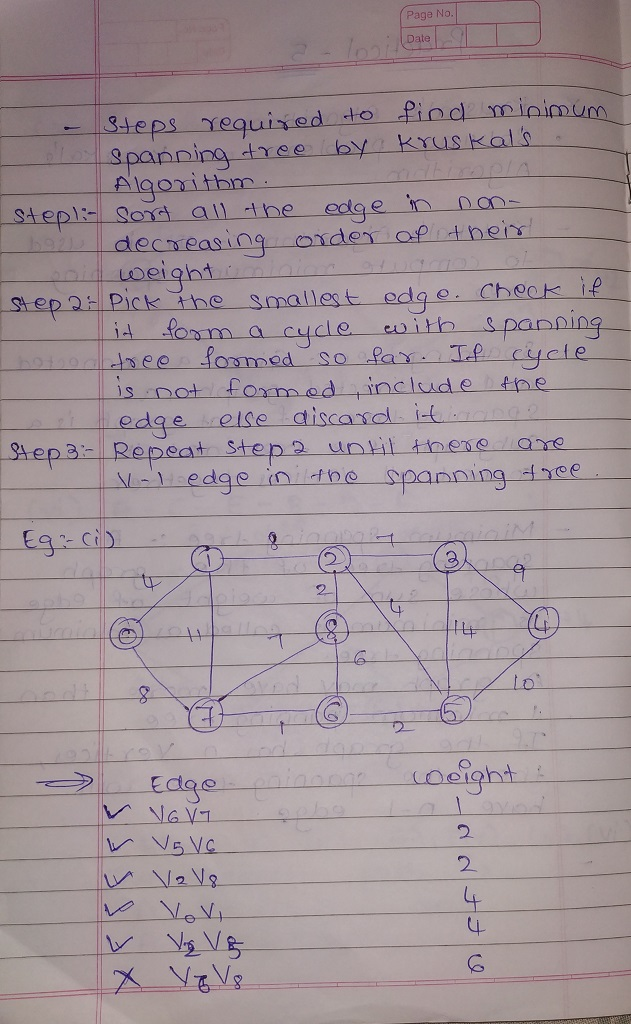 Page No.
Date
- Steps required to find minimum
spanning tree by Kruskal's
Algorithm.
Step1:- Sort all the edge in non-
decreasing order of their
weight
Step 2:- Pick the smallest edge. Check if
it form a cycle with spanning
tree formed so far. If cycle
is not formed, include the
edge else discard it.
Step 3:- Repeat step 2 until there are
V-1 edge in the spanning tree.
Eg:- (i)
1 8 2 7 3
4 9
2 4
0 11 7 8 14 4
6
8 10
7 1 6 2 5
⇒ Edge weight
✓ V6 V7 1
✓ V5 V6 2
✓ V2 V8 2
✓ V0 V1 4
✓ V2 V5 4
✗ V6 V8 6